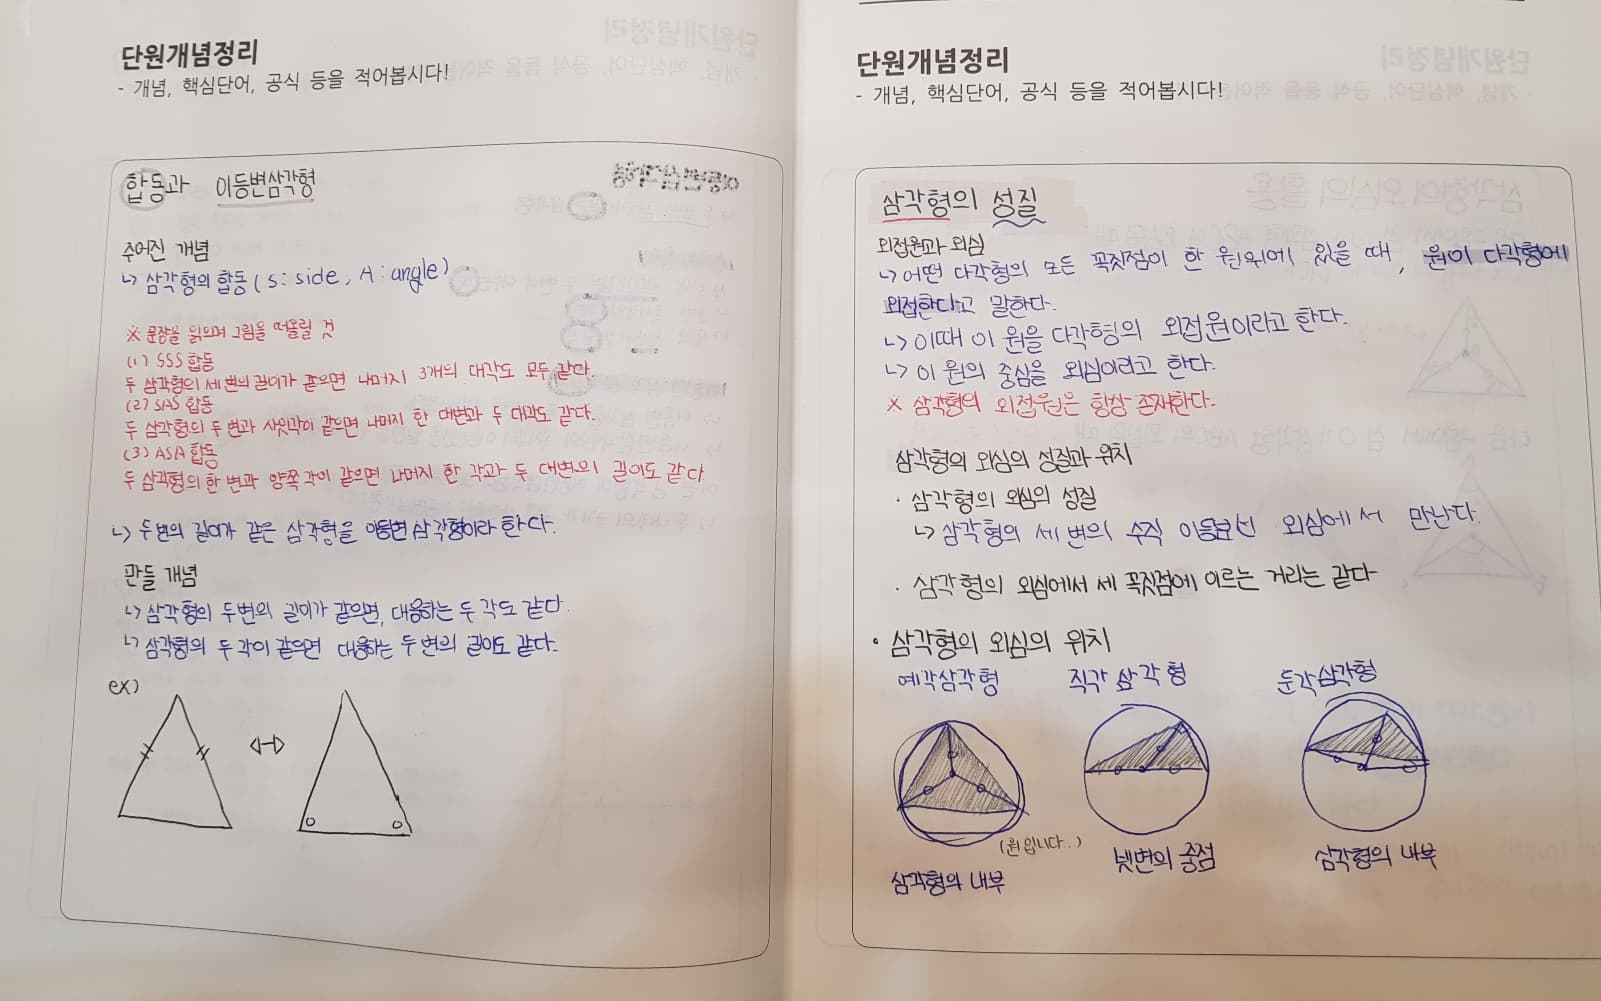 단원개념정리
- 개념, 핵심단어, 공식 등을 적어봅시다!
합동과 이등변삼각형
주어진 개념
↳ 삼각형의 합동 ( S: side, A : angle)
※ 문장을 읽으며 그림을 떠올릴 것
(1) SSS 합동
두 삼각형의 세 변의 길이가 같으면 나머지 3개의 대각도 모두 같다.
(2) SAS 합동
두 삼각형의 두 변과 사잇각이 같으면 나머지 한 대변과 두 대각도 같다.
(3) ASA 합동
두 삼각형의 한 변과 양쪽 각이 같으면 나머지 한 각과 두 대변의 길이도 같다
↳ 두 변의 길이가 같은 삼각형을 이등변 삼각형이라 한다.
만들 개념
↳ 삼각형의 두 변의 길이가 같으면, 대응하는 두 각도 같다.
↳ 삼각형의 두 각이 같으면 대응하는 두 변의 길이도 같다.
ex)
단원개념정리
- 개념, 핵심단어, 공식 등을 적어봅시다!
삼각형의 성질
외접원과 외심
↳ 어떤 다각형의 모든 꼭짓점이 한 원 위에 있을 때, 원이 다각형에
외접한다고 말한다.
↳ 이때 이 원을 다각형의 외접원이라고 한다.
↳ 이 원의 중심을 외심이라고 한다.
※ 삼각형의 외접원은 항상 존재한다.
삼각형의 외심의 성질과 위치
· 삼각형의 외심의 성질
↳ 삼각형의 세 변의 수직 이등분선 외심에서 만난다.
· 삼각형의 외심에서 세 꼭짓점에 이르는 거리는 같다
• 삼각형의 외심의 위치
예각삼각형 직각 삼각형 둔각삼각형
(원입니다..)
삼각형의 내부 빗변의 중점 삼각형의 내부